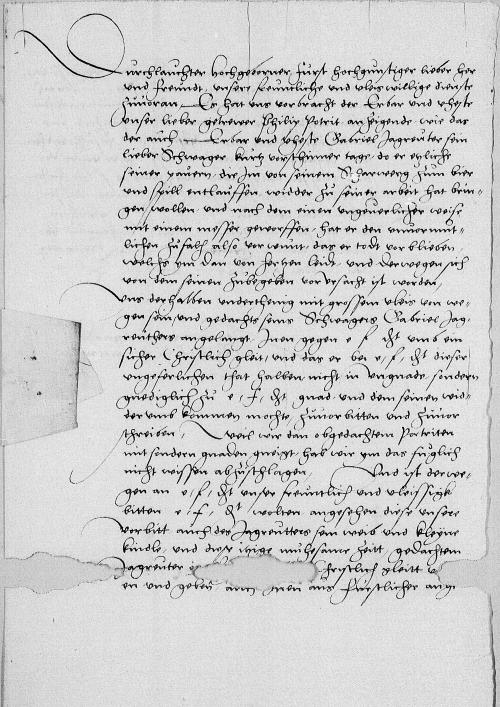 Durchlauchter hochgeborner Furst hochgunstiger lieber her
und freundt, unsere freuntliche und vleiswillige dienste
zuvoran Er hat uns vorbracht der Erbar und vheste
unser lieber getrewer Philip Potrit an zeigende wie das
der auch Erbar und vheste Gabriel Jagreuter sein
lieber Schwager kurtz vorschinner tage, do er etzliche
seiner pauern, die Im von seinem Scharwerg zum bier
und spill entlauffen, widder zu seiner arbeit hat brin-
gen wollen, und nach dem einen ungeverlicher weise
mit einem messer geworffen, hat er den unvormut-
lichen zufals also vorwunt, das er todt vorblieben
welchs ym dan von hertzen leidt, und derwegen sich
von dem seinen zubegeben vorursacht ist worden,
uns derhalben underthenig mit grossem vleis von we-
gen sein, und gedachts seins Schwagers Gabriel Jag-
reuthers angelangt, Inen gegen e f dt umb ein
sicher Christlich gleit, und das er bei e, f, dt dieser
ungeferlichen that halben nicht in ungnade, sondern
gnediglich zu e, f, dt gnad, und dem seinen wid-
derumb kommen mochte, zuvorbitten und zuvor
schreiben, Weil wir dan obgedachtem Potritten
mit sondern gnaden geneigt, hab wir ym das fuglich
nicht wissen abzuschlagen, Und ist derwe-
gen an e, f, dt unser freuntlich und vleissigk
bitten e, f, dt wolten angesehen diese unsere
vorbitt auch des Jagreutters sein weib und kleyne
kindle, und diese itzige muhesame zeitt, gedachtem
Jagreuter christlich gleitt
en und geben, auch Inen aus furstlicher ang